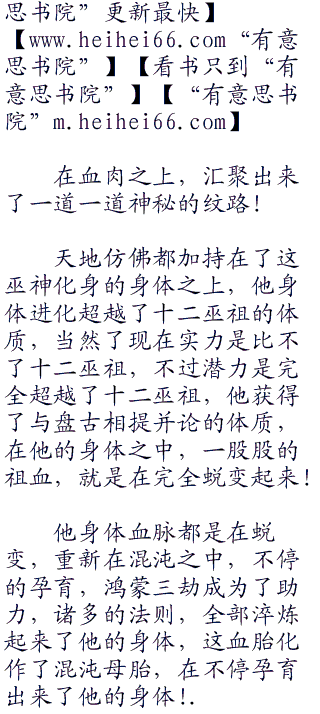 思书院”更新最快】
【www.heihei66.com“有意
思书院”】【看书只到“有
意思书院”】【“有意思书
院”m.heihei66.com】
在血肉之上，汇聚出来
了一道一道神秘的纹路！
天地仿佛都加持在了这
巫神化身的身体之上，他身
体进化超越了十二巫祖的体
质，当然了现在实力是比不
了十二巫祖，不过潜力是完
全超越了十二巫祖，他获得
了与盘古相提并论的体质，
在他的身体之中，一股股的
祖血，就是在完全蜕变起来！
他身体血脉都是在蜕
变，重新在混沌之中，不停
的孕育，鸿蒙三劫成为了助
力，诸多的法则，全部淬炼
起来了他的身体，这血胎化
作了混沌母胎，在不停孕育
出来了他的身体！.